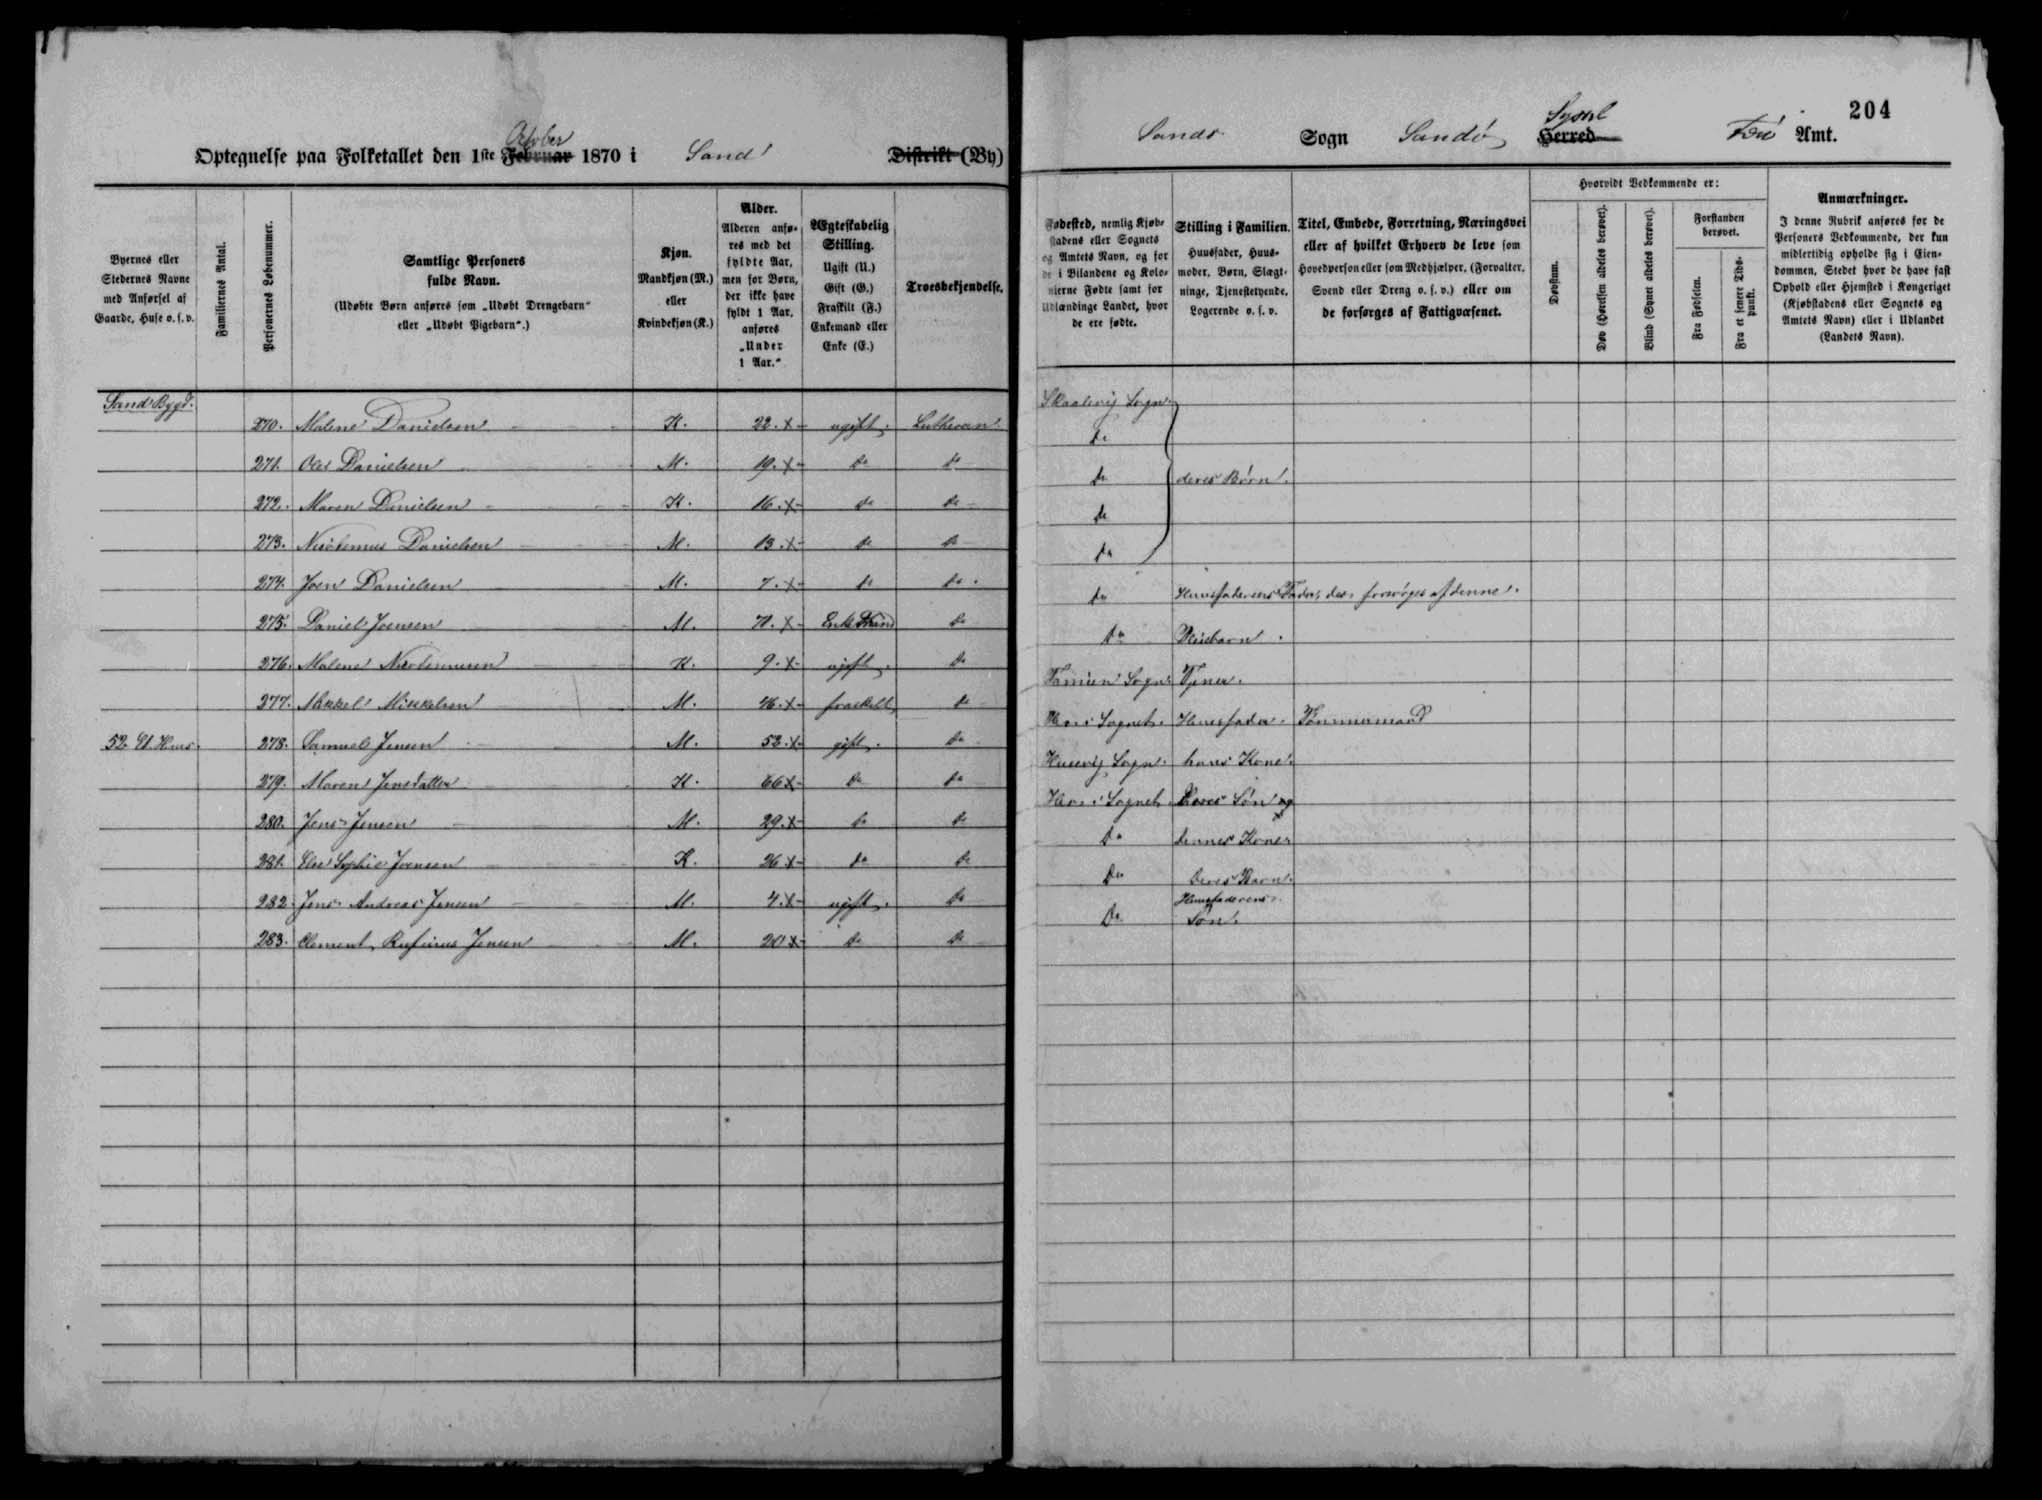 204
Optegnelse paa Folketallet den 1ste Februar October 1870 i Sand Distrikt (By)
Sands Sogn Sandø Herred Syssel Færø Amt.
Byernes eller Stedernes Navne med Anførsel af Gaarde, Huse o. s. v.
Familiernes Antal.
Personernes Løbenummer.
Samtlige Personers fulde Navn.
(Udøbte Børn anføres som „Udøbt Drengebarn“ eller „Udøbt Pigebarn“.)
Kjøn.
Mandkjøn (M.) eller Kvindekjøn (K.)
Alder.
Alderen anføres med det fyldte Aar, men for Børn, der ikke have fyldt 1 Aar, anføres „Under 1 Aar.“
Ægteskabelig Stilling.
Ugift (U.) Gift (G.) Fraskilt (F.) Enkemand eller Enke (E.)
Troesbekjendelse.
Fødested, nemlig Kjøbstadens eller Sognets og Amtets Navn, og for de i Bilandene og Kolonierne Fødte samt for Udlændinge Landet, hvor de ere fødte.
Stilling i Familien.
Huusfader, Huusmoder, Børn, Slægtninge, Tjenestetyende, Logerende o. s. v.
Titel, Embede, Forretning, Næringsvei eller af hvilket Erhverv de leve som Hovedperson eller som Medhjælper, (Forvalter, Svend eller Dreng o. s. v.) eller om de forsørges af Fattigvæsenet.
Hvorvidt Vedkommende er:
Døvstum.
Døv (Hørelsen aldeles berøvet).
Blind (Synet aldeles berøvet).
Forstanden berøvet.
Fra Fødselen.
Fra et senere Tidspunkt.
Anmærkninger.
I denne Rubrik anføres for de Personers Vedkommende, der kun midlertidig opholde sig i Eiendommen, Stedet hvor de have fast Ophold eller Hjemsted i Kongeriget (Kjøbstadens eller Sognets og Amtets Navn) eller i Udlandet (Landets Navn).
Sand Bygd.
270. Malene Danielsen K. 22. ugift. Lutheran Skaalevig Sogn.
271. Ole Danielsen M. 19. do do do
272. Maren Danielsen K. 16. do do do deres Børn.
273. Nicodemus Danielsen M. 13. do do do
274. Joen Danielsen M. 7. do do do
275. Daniel Joensen M. 71. Enkemand do do Huusfaderens Fader, der forsørges af denne.
276. Malene Nicodemusen K. 9. ugift. do do Pleiebarn.
277. Mikkel Mikkelsen M. 46. fraskilt do Famien Sogn. Tjener.
52. Et Huus. 278. Samuel Jensen M. 53. gift. do Her i Sognet. Huusfader. Tømmermand
279. Maren Jensdatter K. 66 do do Husevig Sogn. hans Kone.
280. Jens Jensen M. 29. do do Her i Sognet Deres Søn og
281. Else Sophie Joensen K. 26 do do do dennes Kone
282. Jens Andreas Jensen M. 4. ugift. do do Deres Barn.
283. Clement Rufinus Jensen M. 20 do do do Huusfaderens Søn.